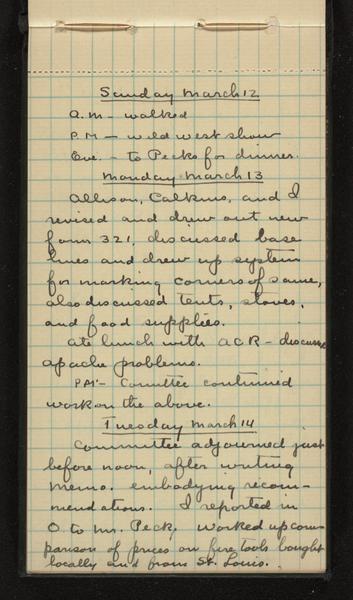 Sunday March 12
A.M - walked
P.M - wild west show
Eve. - to Pecks for dinner.
Monday March 13
Allison, Calkins, and I
revised and drew out new
form 321, discussed base
lines and drew up system
for marking corners of same,
also discussed tents, stoves,
and food supplies.
Ate lunch with ACR - discussed
apache problems.
PM - Comittee continued
work on the above.
Tuesday March 14
Committee adjourned just
before noon, after writing
memo. embodying recom-
mendations. I reported in
O to Mr. Peck, worked up com-
parison of prices on fire tools bought
locally and from St. Louis.